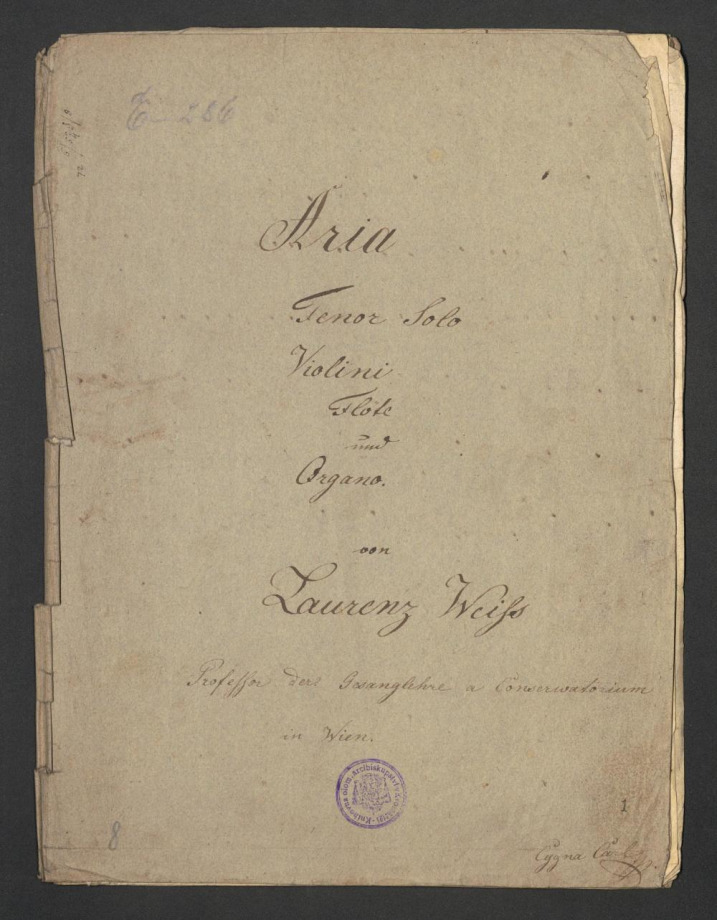 E 286
Aria
Tenor Solo
Violini
Flöte
und
Organo.
von
Laurenz Weiſs
Profeſsor der Gesanglehre a Conserwatorium
in Wien.
1
8
Cygna